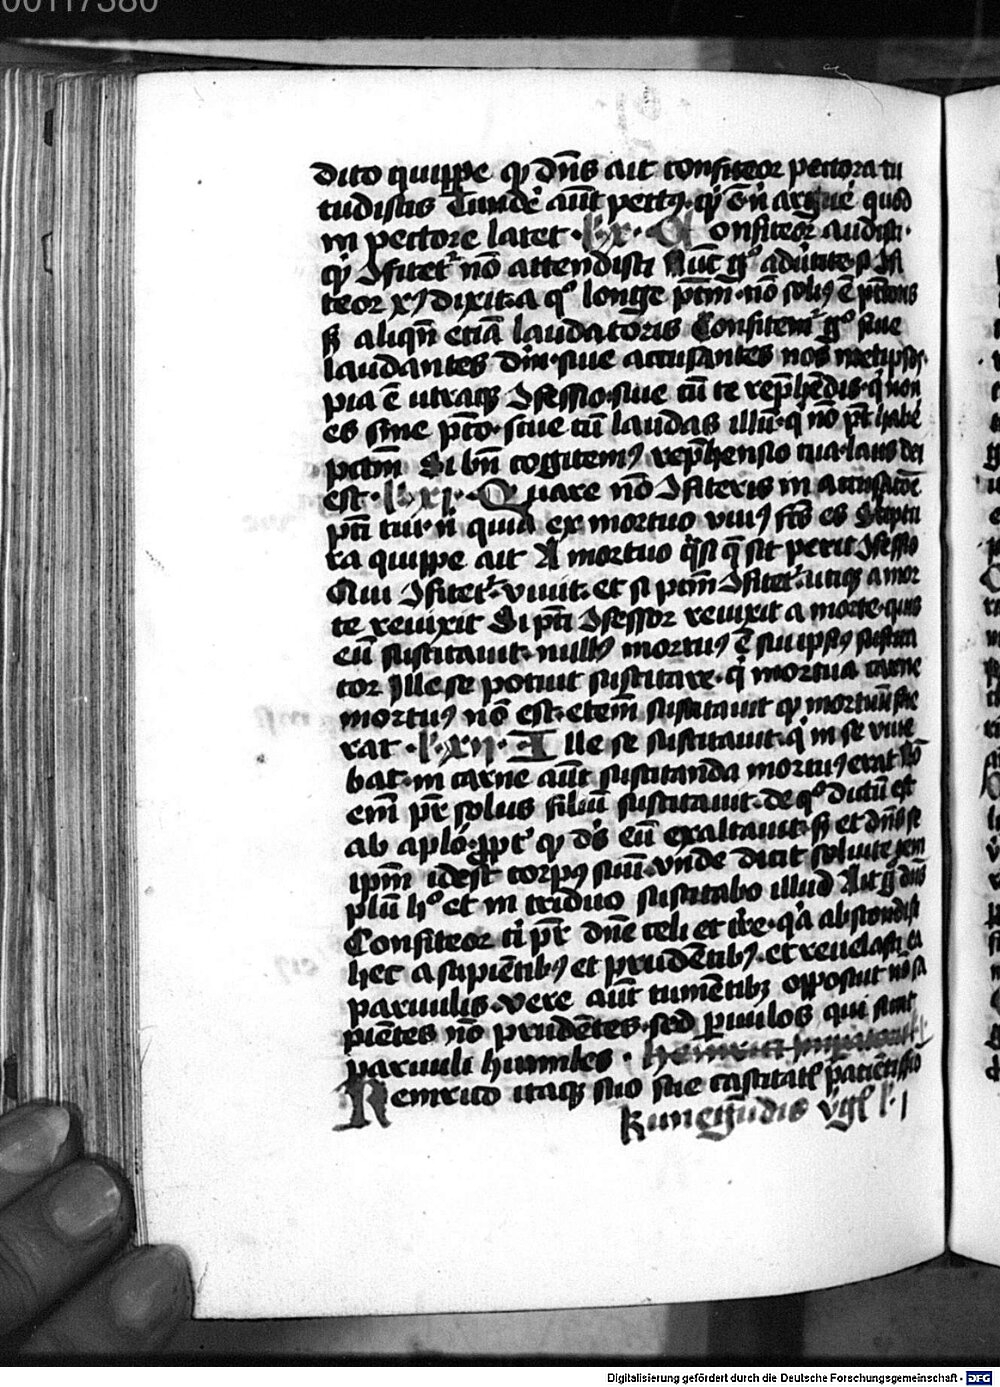 00117380
dito quippe qͥ dn̄s ait confiteor pectora tu
tudistis Tunde᷒ aūt pectꝰ qͥ ē n̄ argue᷒ quod
in pectore latet · l· x · C onfiteor audisti·
qͥ ꝯfitet᷑ nō attendisti Nūc gͦ adu̇tite si ꝯfi
teor xꝰ dixit a qͦ longe pctm̄ nō solꝰ ē pctoris
sꝫ aliqn̄ etiā laudatoris Confitem᷑ gͦ siue
laudantes dm̄ siue accusantes nos metipsos·
pia ē utraqꝫ ꝯfessio siue cū te rep̄hēdis qͥ non
es sine pctō· siue cū laudas illū qͥ nō pt̄ habe᷒
pctm̄ Si bn̄ cogitemꝰ rep̄hensio tua laus dei
est · l· xi · Q uare nō ꝯfiteris in accusatōe
pcti tui n̄ quia ex mortuo viuꝰ fc̄s es Scptu
ra quippe ait A mortuo qͣsi qͥ nō sit perit ꝯfessio
Qui ꝯfitet᷑ viuit et si pctm̄ ꝯfitet᷑ utiqꝫ a mor
te reuixit Si pcti ꝯfessor reuixit a morte quis
eū suscitauit nullꝰ mortuꝰ ē sui ipsiꝰ suscita
tor Ille se potuit suscitare qͥ mortua carne
mortuꝰ nō est etem̄ suscitauit qͥ mortuū fue
rat · l· xij · I lle se suscitauit qͥ in se viue
bat in carne aūt suscitanda mortuꝰ erat Nō
em̄ pr̄ solus filiū suscitauit de qͦ dictū est
ab apło ꝓpt᷑ qͥ ds̄ eū exaltauit sꝫ et dn̄s se
ipm̄ idest corpꝰ suū vnde dicit soluite tem
plū hͦ et in triduo suscitabo illud Ait g̊ dn̄s
Confiteor ti pr̄ dn̄e celi et tr̄e qͥa abscondisti
hec a sapiētibꝰ et prudētibꝰ et reuelasti ea
paruulis vere aūt tumētibꝫ opposuit nō sa
piētes nō prudētes sed ꝑuulos qui sunt
paruuli humiles · heinrici Imperatoris
Remxcio itaqꝫ suo sue castitatꝭ paciētissīo
Kunegūdis v̇gꝭ l· j
Digitalisierung gefördert durch die Deutsche Forschungsgemeinschaft - DFG